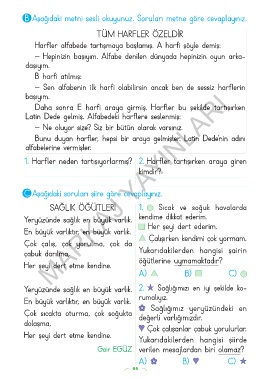 B Aşağıdaki metni sesli okuyunuz. Soruları metne göre cevaplayınız.
TÜM HARFLER ÖZELDİR
Harfler alfabede tartışmaya başlamış. A harfi şöyle demiş:
– Hepinizin başıyım. Alfabe denilen dünyada hepinizin oyun arka-
daşıyım.
B harfi atılmış:
– Sen alfabenin ilk harfi olabilirsin ancak ben de sessiz harflerin
başıyım.
Daha sonra E harfi araya girmiş. Harfler bu şekilde tartışırken
Latin Dede gelmiş. Alfabedeki harflere seslenmiş:
– Ne oluyor size? Siz bir bütün olarak varsınız.
Bunu duyan harfler, hepsi bir araya gelmişler. Latin Dede'nin adını
alfabelerine vermişler.
1. Harfler neden tartışıyorlarmış?
2. Harfler tartışırken araya giren
kimdir?
C Aşağıdaki soruları şiire göre cevaplayınız.
SAĞLIK ÖĞÜTLERİ
Yeryüzünde sağlık en büyük varlık.
En büyük varlıktır, en büyük varlık.
Çok çalış, çok yorulma, çok da
çabuk darılma,
Her şeyi dert etme kendine.
Yeryüzünde sağlık en büyük varlık.
En büyük varlıktır, en büyük varlık.
Çok sıcakta oturma, çok soğukta
dolaşma,
Her şeyi dert etme kendine.
Gair EGÜZ
1. Sıcak ve soğuk havalarda
kendime dikkat ederim.
Her şeyi dert ederim.
Çalışırken kendimi çok yormam.
Yukarıdakilerden hangisi şairin
öğütlerine uymamaktadır?
A) B) C)
2. Sağlığımızı en iyi şekilde ko-
rumalıyız.
Sağlığımız yeryüzündeki en
değerli varlığımızdır.
Çok çalışanlar çabuk yorulurlar.
Yukarıdakilerden hangisi şiirde
verilen mesajlardan biri olamaz?
A) B) C)